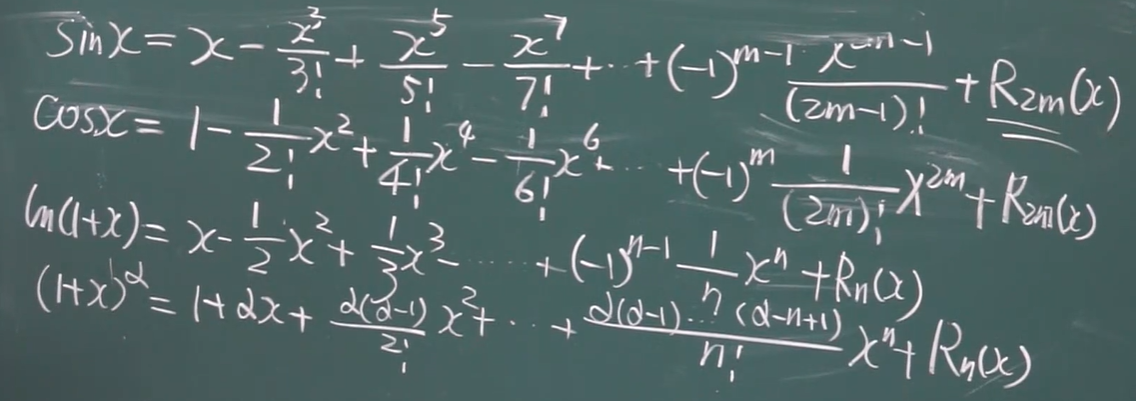 sinx = x - x³/3! + x⁵/5! - x⁷/7! + ⋯ + (-1)ᵐ⁻¹ x²ᵐ⁻¹/(2m-1)! + R₂ₘ(x)
cosx = 1 - 1/2! x² + 1/4! x⁴ - 1/6! x⁶ + ⋯ + (-1)ᵐ 1/(2m)! x²ᵐ + R₂ₘ(x)
ln(1+x) = x - 1/2 x² + 1/3 x³ - ⋯⋯ + (-1)ⁿ⁻¹ 1/n xⁿ + Rₙ(x)
(1+x)^α = 1 + αx + α(α-1)/2! x² + ⋯ + α(α-1)⋯(α-n+1)/n! xⁿ + Rₙ(x)